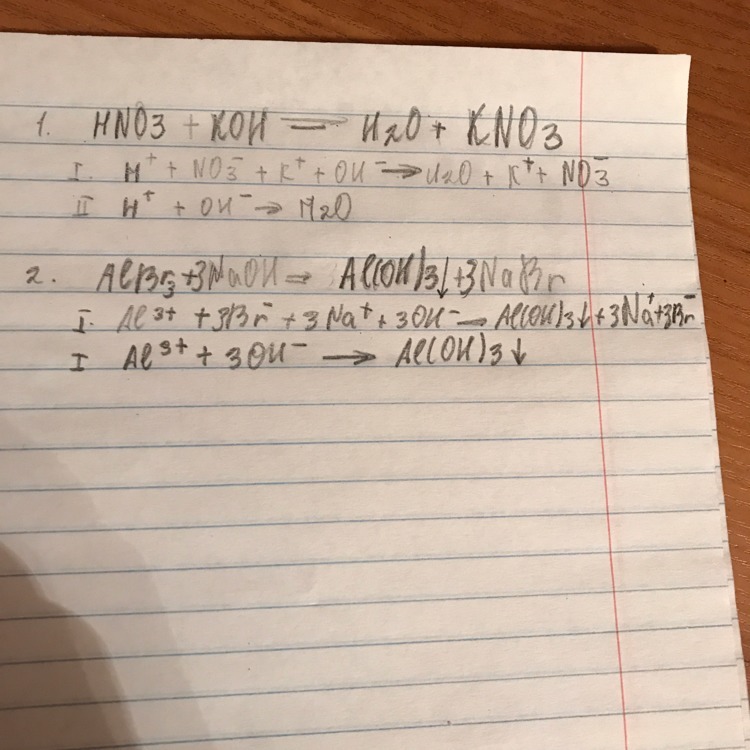 1. HNO3 + KOH = H2O + KNO3
I. H⁺ + NO3⁻ + K⁺ + OH⁻ → H2O + K⁺ + NO3⁻
II H⁺ + OH⁻ → H2O
2. AlBr3 + 3NaOH → Al(OH)3↓ + 3NaBr
I. Al³⁺ + 3Br⁻ + 3Na⁺ + 3OH⁻ → Al(OH)3↓ + 3Na⁺ + 3Br⁻
I Al³⁺ + 3OH⁻ → Al(OH)3↓